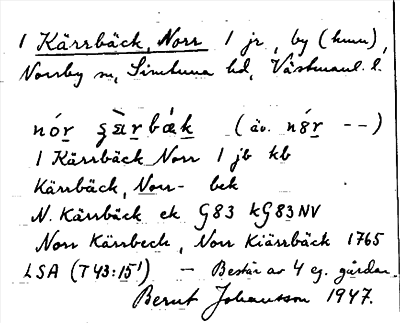 1 Kärrbäck, Norr 1 jr, by (kmn),
Norrby sn, Simtuna hd, Västmanl. l.
nór sæ̀rbæk (äv. nór --)
1 Kärrbäck Norr 1 jb kb
Kärrbäck, Norr- bek
N. Kärrbäck ek G83 kG83NV
Norr Kärrbeck, Norr Kiärrbäck 1765
LSA (T43:15¹) – Består av 4 eg. gårdar.
Bernt Johansson 1947.